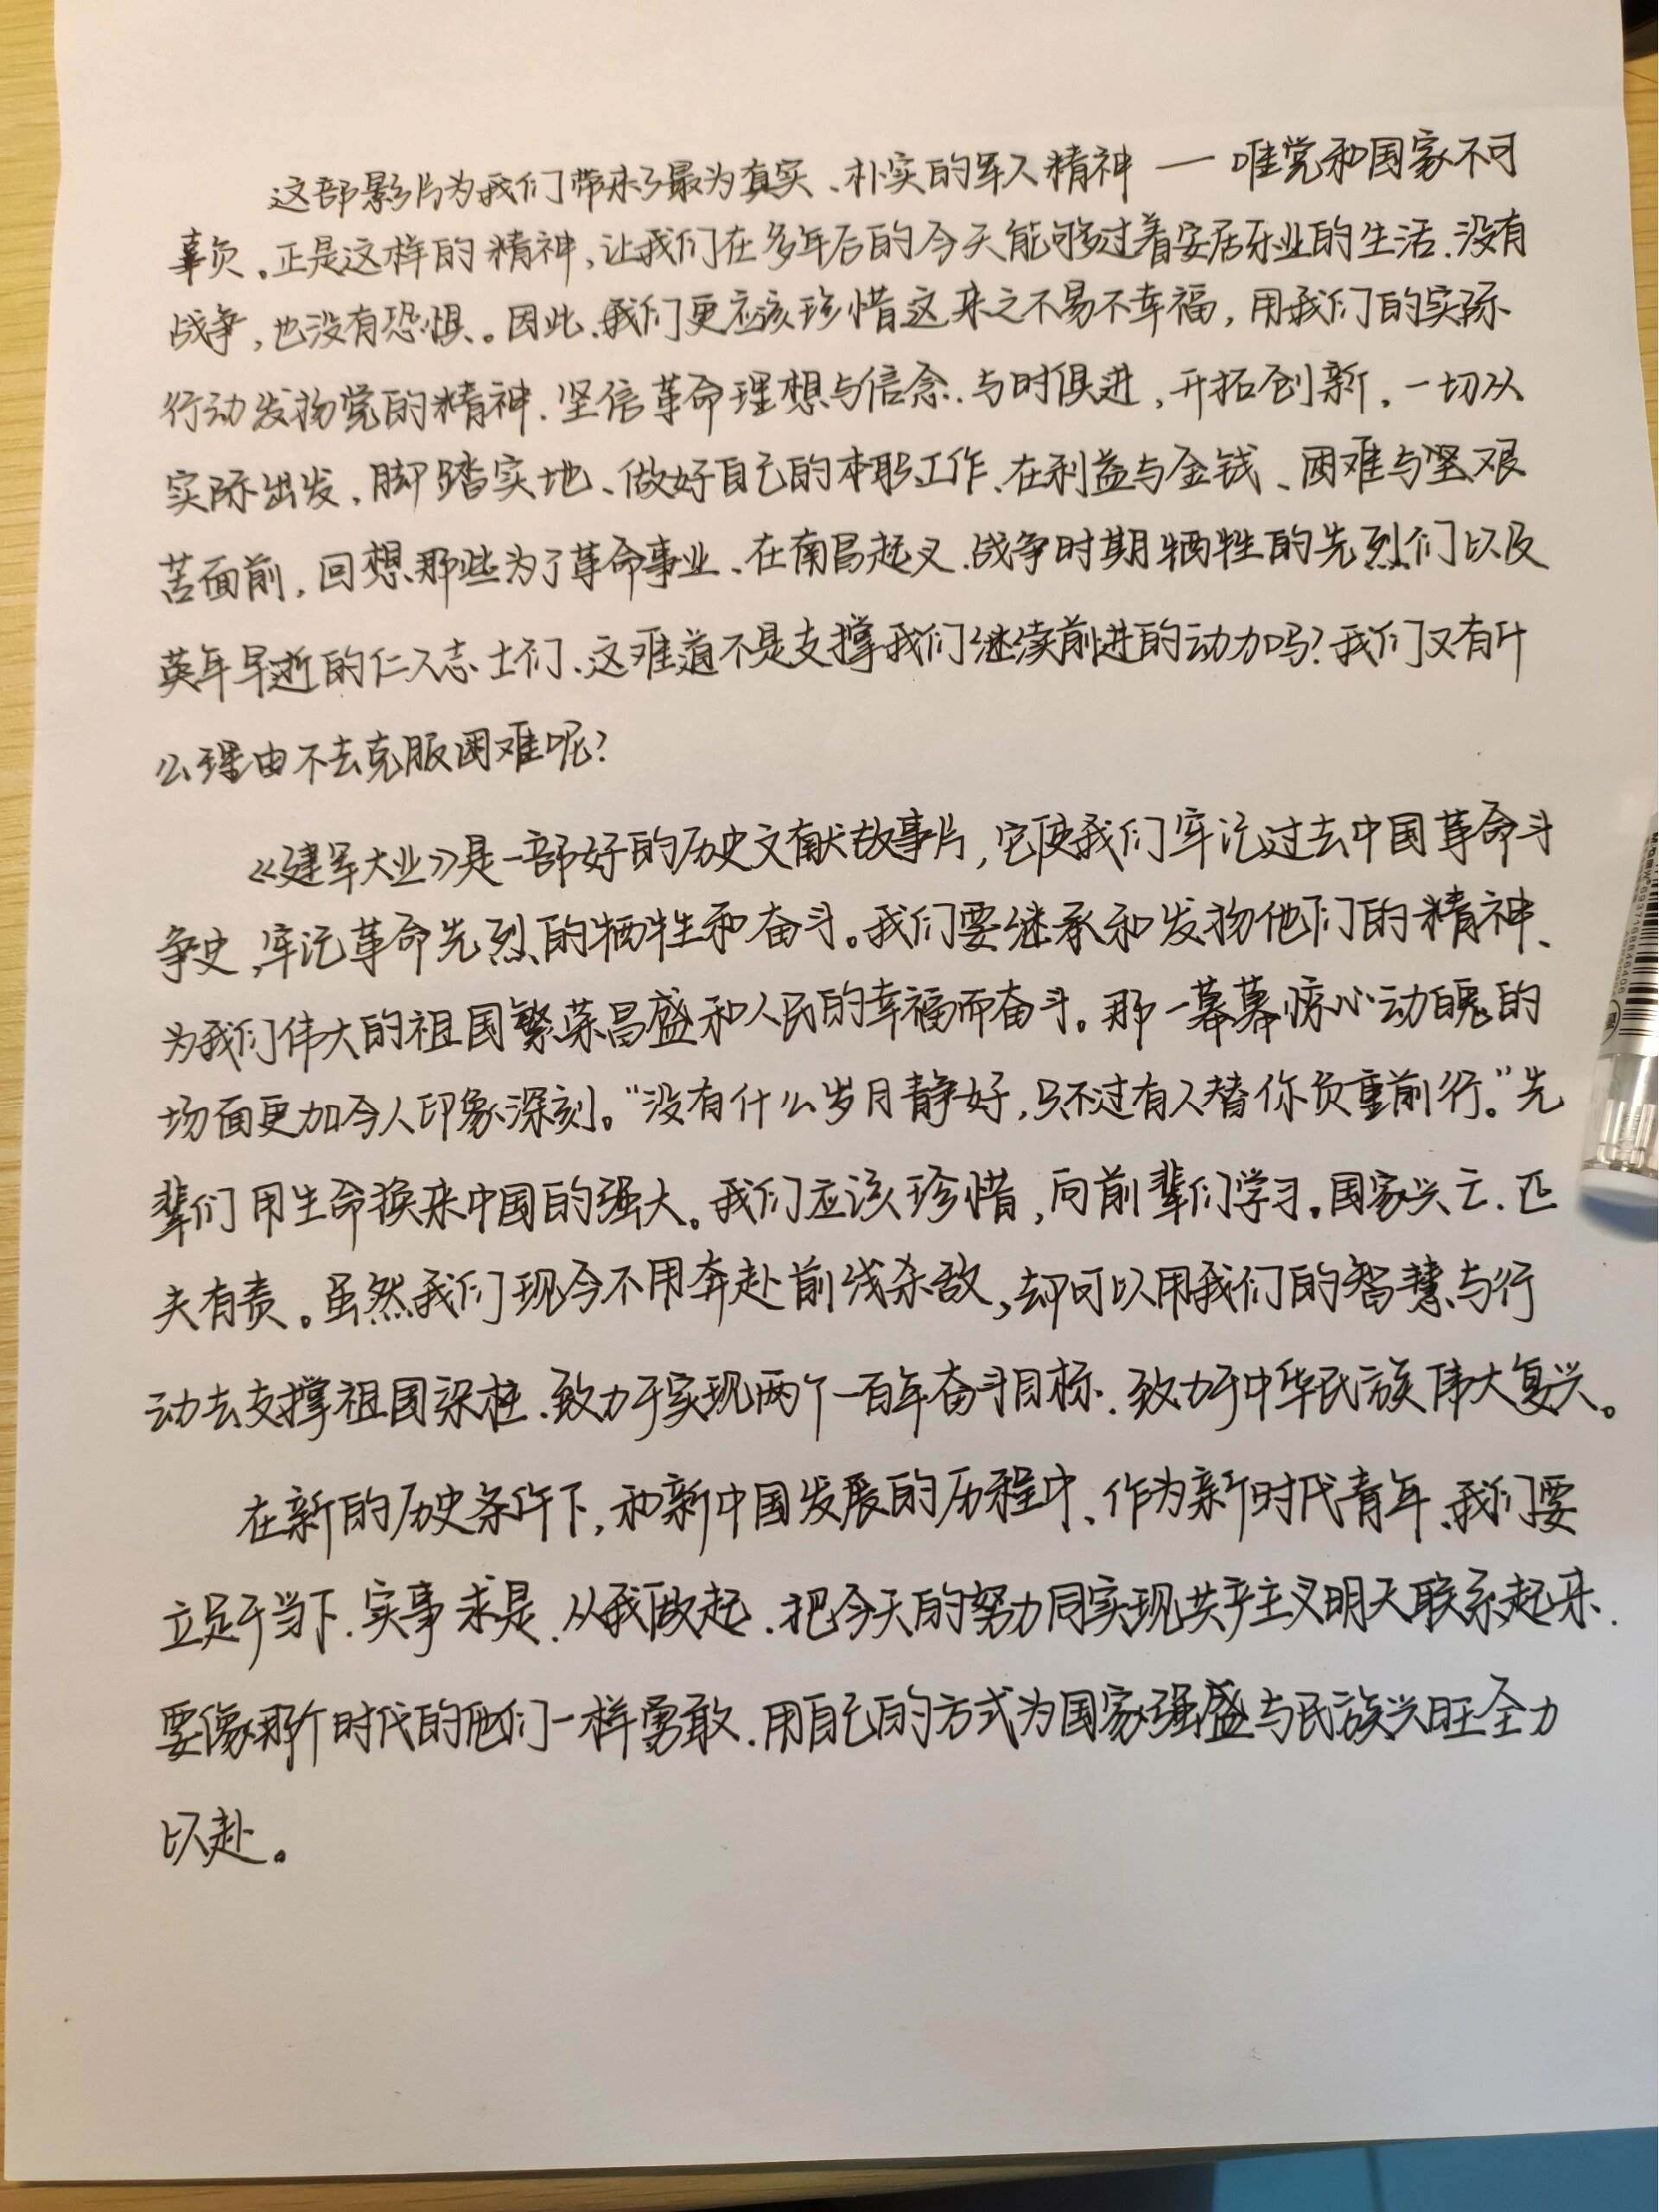 这部影片为我们带来了最为真实、朴实的军人精神 — 唯党和国家不可
辜负。正是这样的精神,让我们在多年后的今天能够过着安居乐业的生活.没有
战争,也没有恐惧。因此、我们更应该珍惜这来之不易不幸福,用我们的实际
行动发扬党的精神.坚信革命理想与信念.与时俱进,开拓创新。一切从
实际出发,脚踏实地、做好自己的本职工作、在利益与金钱、困难与坚艰
苦面前,回想那些为了革命事业、在南昌起义.战争时期牺牲的先烈们以及
英年早逝的仁人志士们、这难道不是支撑我们继续前进的动力吗?我们又有什
么理由不去克服困难呢?
《建军大业》是一部好的历史文献故事片,它使我们牢记过去中国革命斗
争史,牢记革命先烈的牺牲和奋斗。我们要继承和发扬他们的精神、
为我们伟大的祖国繁荣昌盛和人民的幸福而奋斗。那一幕幕惊心动魄的
场面更加令人印象深刻。"没有什么岁月静好,只不过有人替你负重前行。"先
辈们用生命换来中国的强大。我们应该珍惜,向前辈们学习。国家兴亡.匹
夫有责。虽然我们现今不用奔赴前线杀敌,却可以用我们的智慧与行
动去支撑祖国梁柱.致力于实现两个一百年奋斗目标.致力于中华民族伟大复兴。
在新的历史条件下,和新中国发展的历程中、作为新时代青年、我们要
立足于当下.实事求是.从我做起.把今天的努力同实现共产主义明天联系起来.
要像那个时代的他们一样勇敢.用自己的方式为国家强盛与民族兴旺全力
以赴。